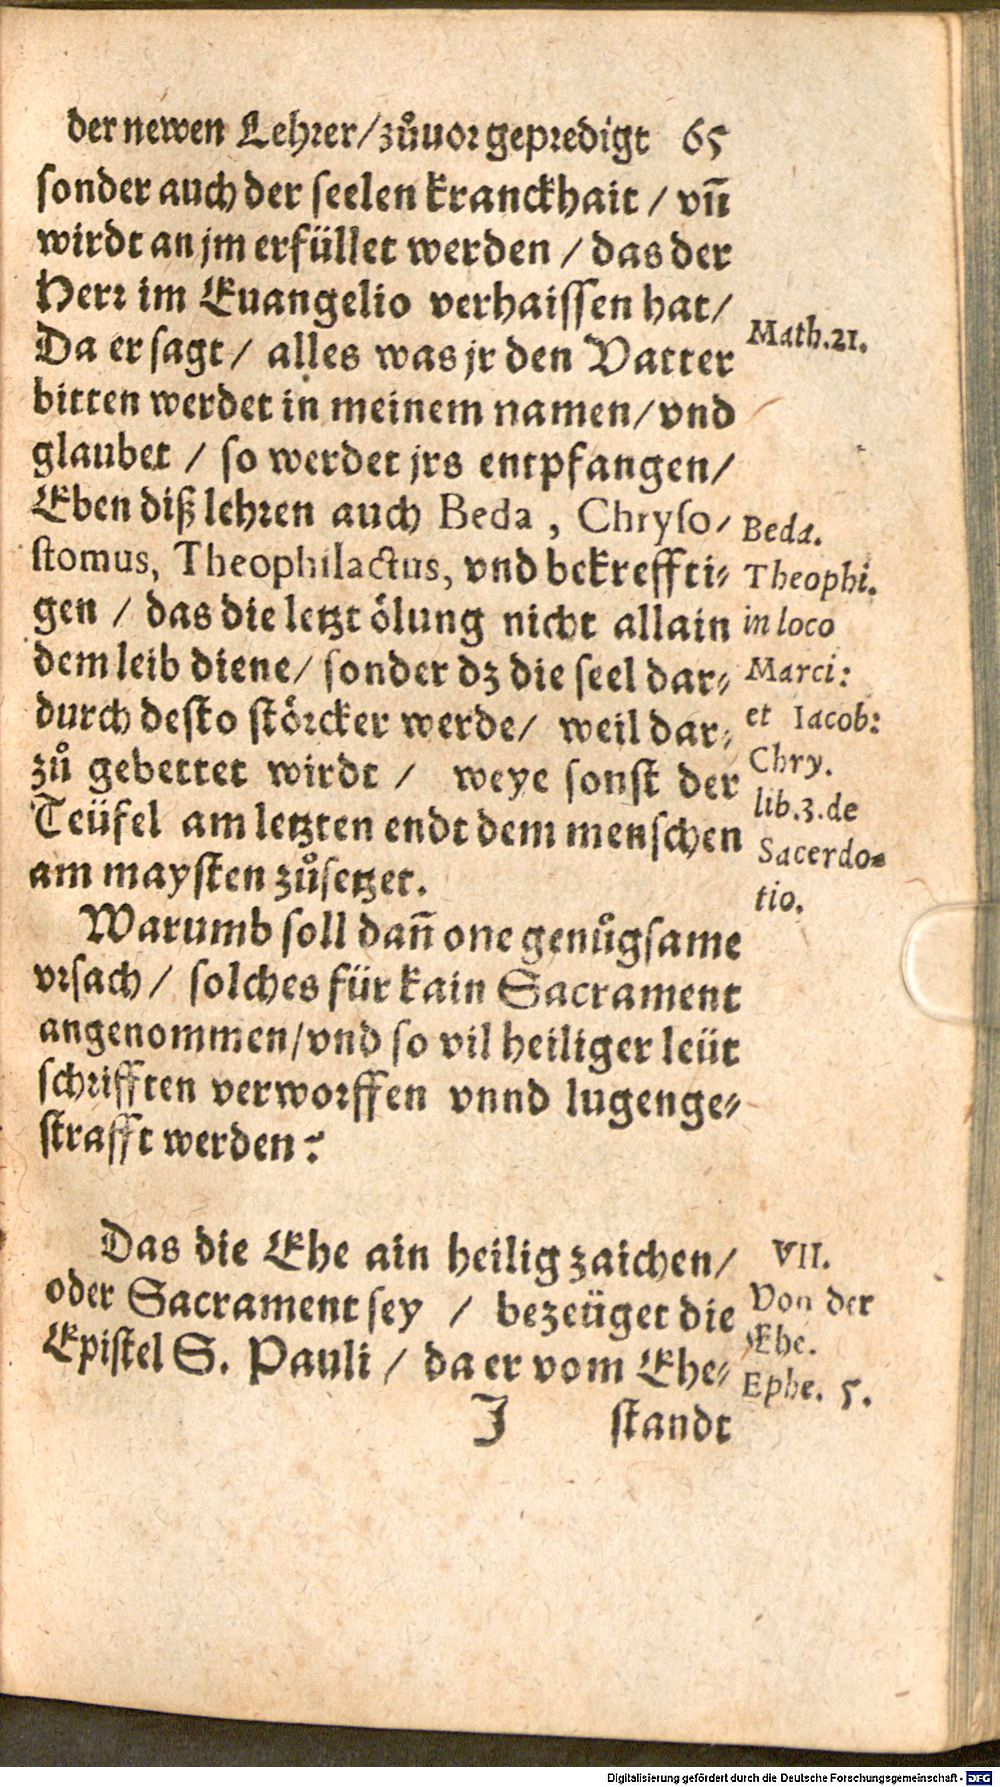 der newen Lehrer/zůuor gepredigt 65
sonder auch der seelen kranckhait / vñ
wirdt an jm erfüllet werden / das der
Herr im Euangelio verhaissen hat/
Da er sagt/ alles was jr den Vatter
bitten werdet in meinem namen/vnd
glaubet / so werdet jrs entpfangen/
Eben diß lehren auch Beda , Chryso-
stomus, Theophilactus, vnd bekreffti-
gen / das die letzt ölung nicht allain
dem leib diene/ sonder dz die seel dar-
durch desto störcker werde/ weil dar-
zů gebettet wirdt / weye sonst der
Teüfel am letzten endt dem menschen
am maysten zůsetzet.
Warumb soll dañ one genůgsame
vrsach/ solches für kain Sacrament
angenommen/vnd so vil heiliger leüt
schrifften verworffen vnnd lugenge-
strafft werden?
Das die Ehe ain heilig zaichen/
oder Sacrament sey / bezeüget die
Epistel S. Pauli / da er vom Ehe-
J standt
Math.21.
Beda.
Theophi.
in loco
Marci:
et Iacob:
Chry.
lib.3.de
Sacerdo-
tio.
VII.
Von der
Ehe.
Ephe. 5.
Digitalisierung gefördert durch die Deutsche Forschungsgemeinschaft - DFG